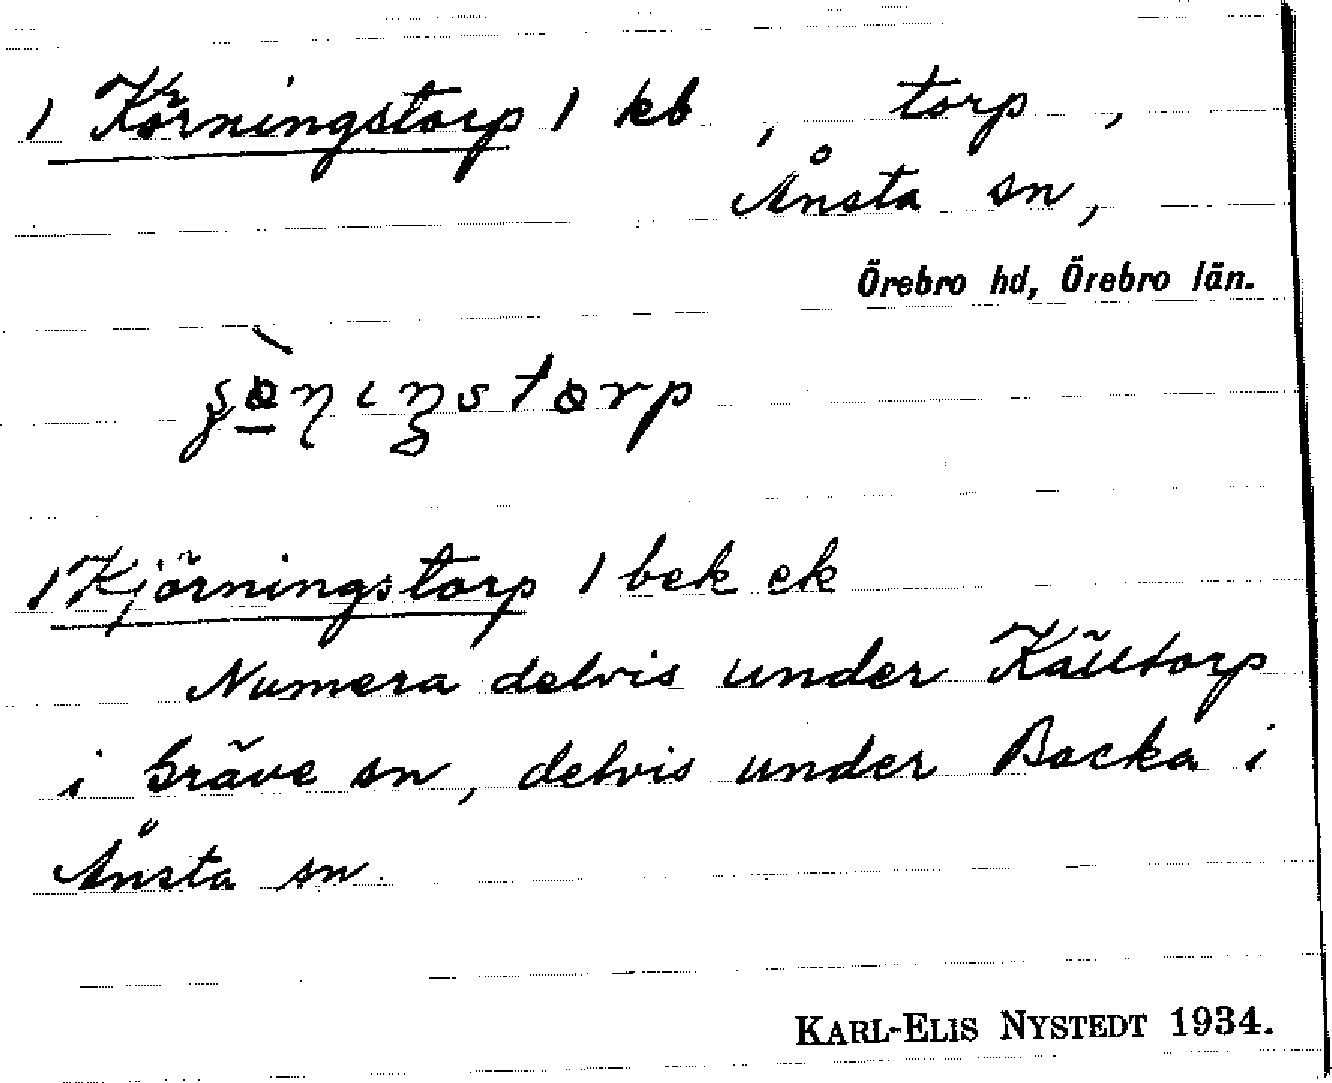 / Körningstorp / kb , torp ,
Ånsta sn,
Örebro hd, Örebro län.
/ Kjörningstorp / bek ek
Numera delvis under Källtorp
i Gräve sn, delvis under Backa i
Ånsta sn.
KARL-ELIS NYSTEDT 1934.